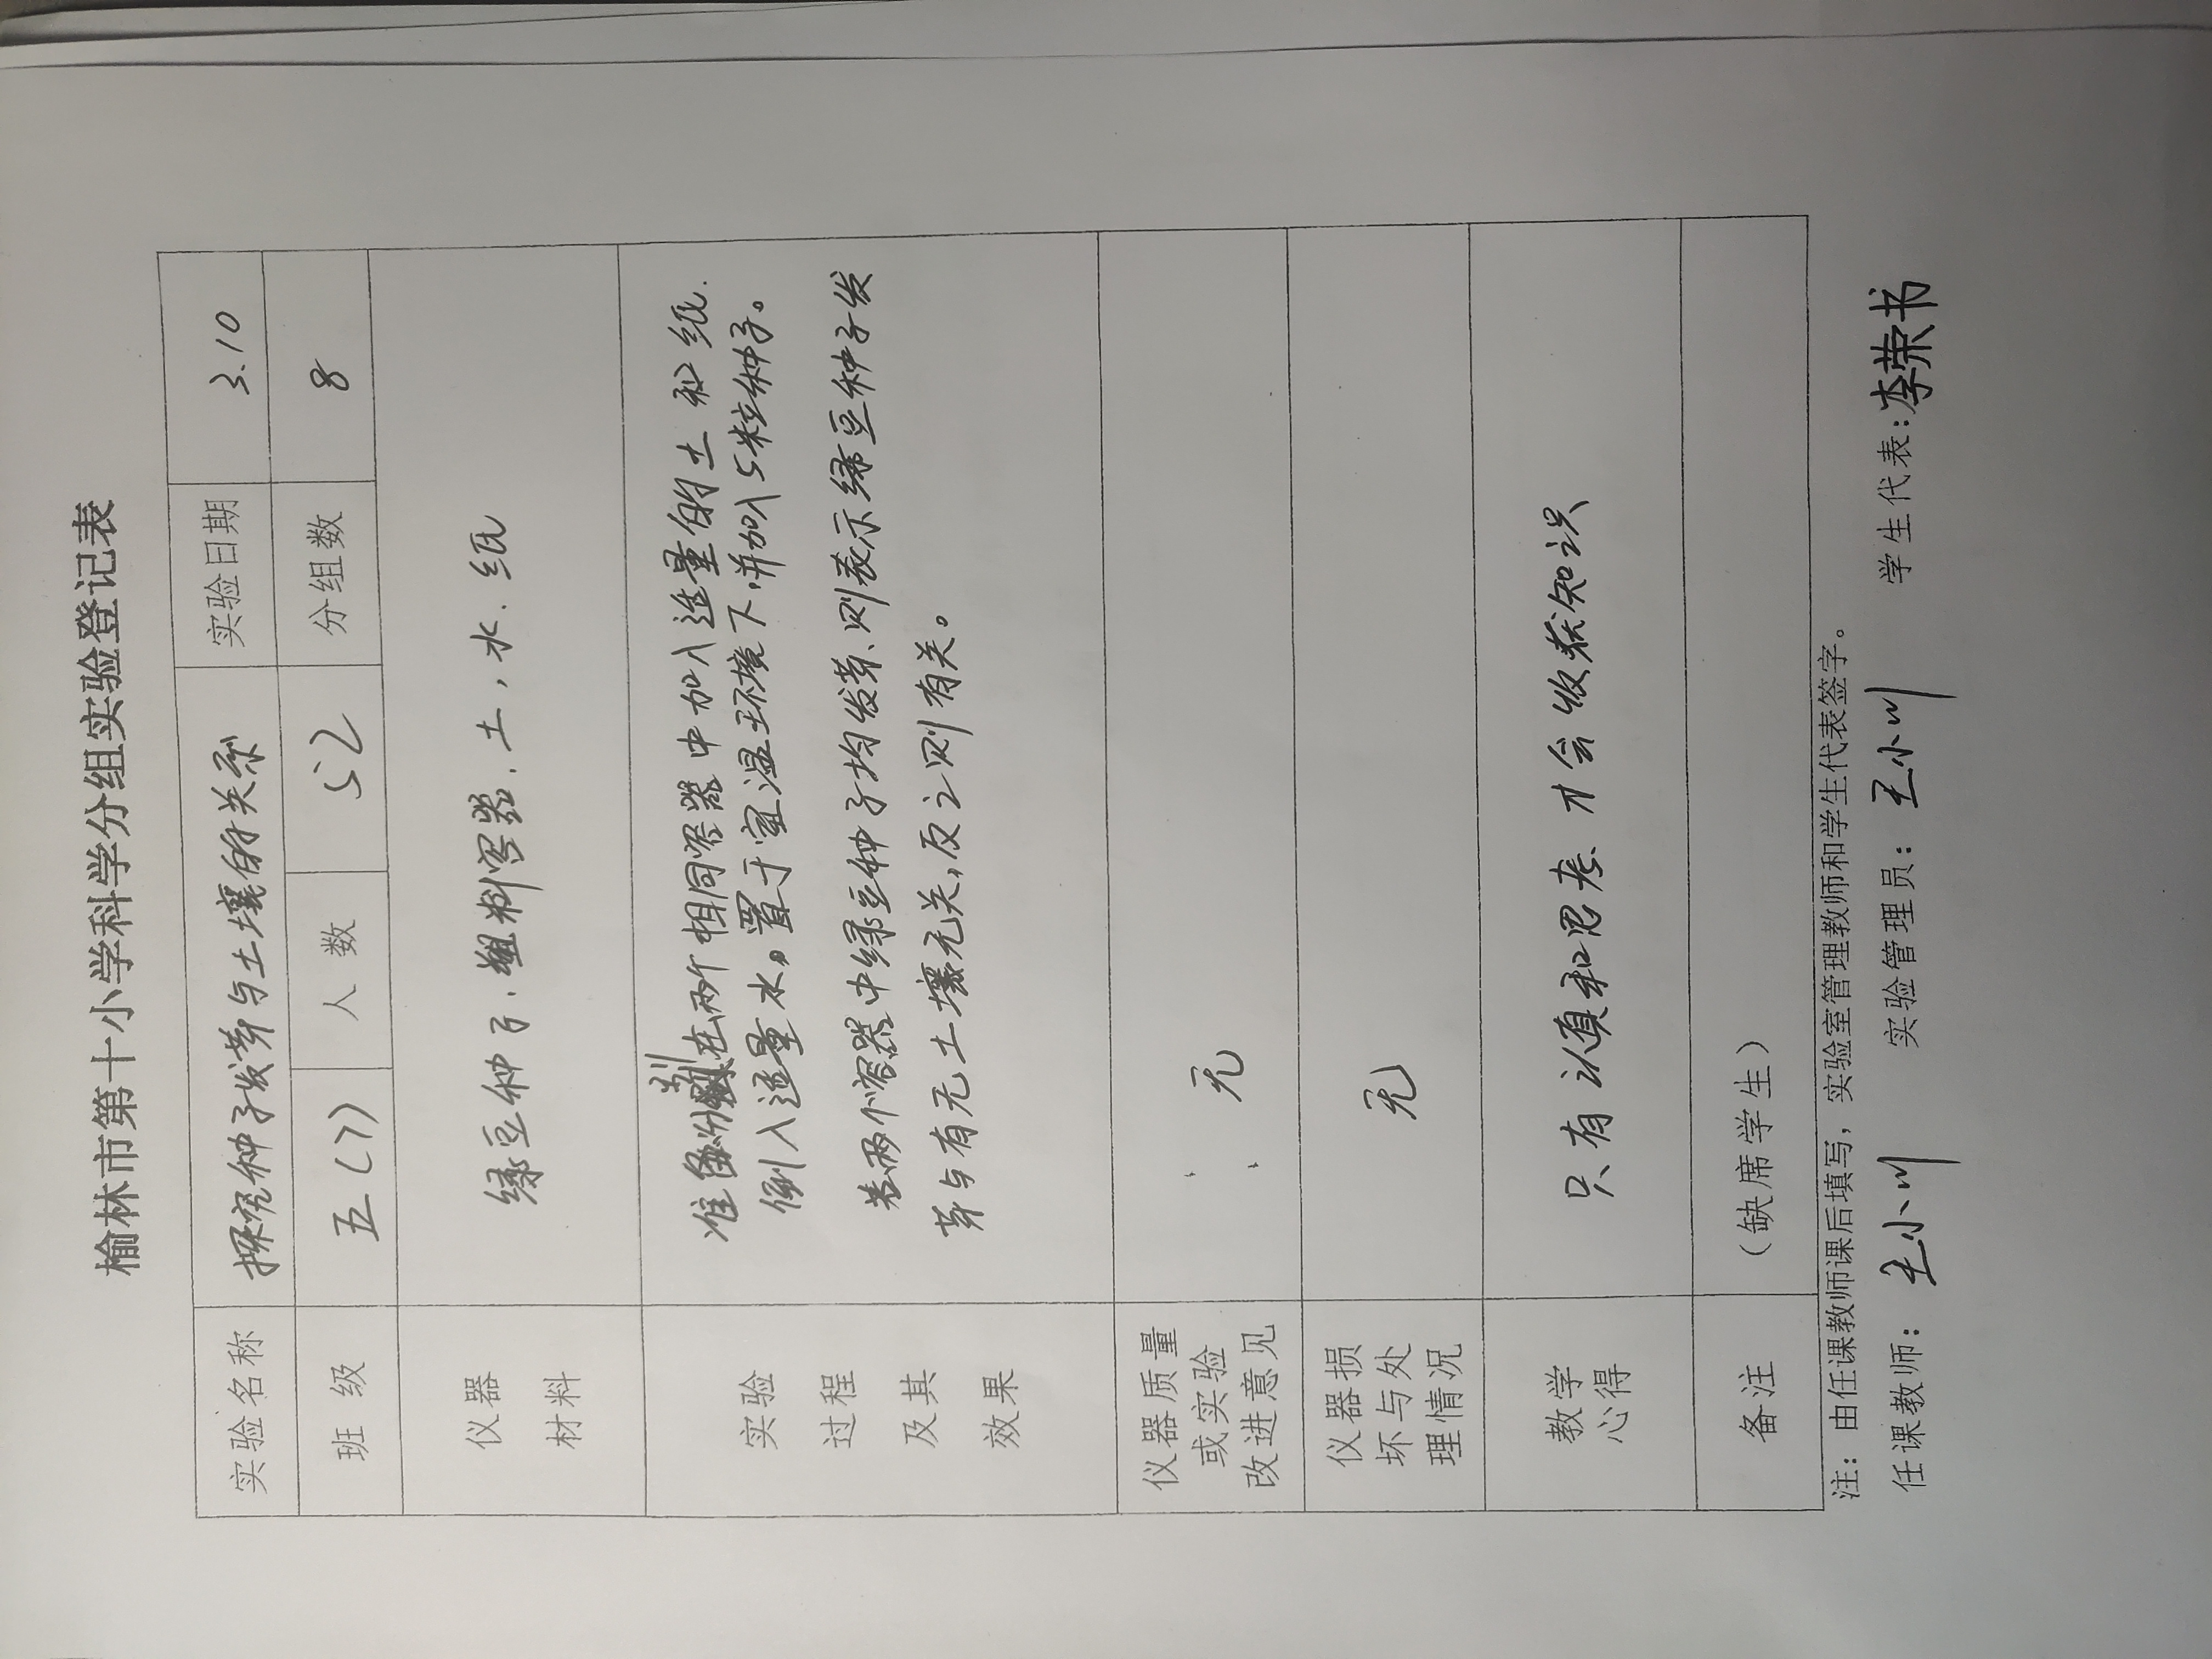 榆林市第十小学科学分组实验登记表
实验名称 探究种子发芽与土壤的关系 实验日期 3.10
班 级 五(7) 人 数 52 分组数 8
仪器
材料
绿豆种子.塑料容器.土,水.纸
实验
过程
及其
效果
别在两个相同容器中加入适量的土和纸.
倒入适量水。置于室温环境下,并加入5粒种子。
若两个容器中绿豆种子均发芽、则表示绿豆种子发
芽与有无土壤无关,反之则有关。
仪器质量
或实验
改进意见
无
仪器损
坏与处
理情况
无
教学
心得
只有认真和思考 才会收获知识
备注 (缺席学生)
注:由任课教师课后填写,实验室管理教师和学生代表签字。
任课教师:王小川 实验管理员:王小川 学生代表:李荣书